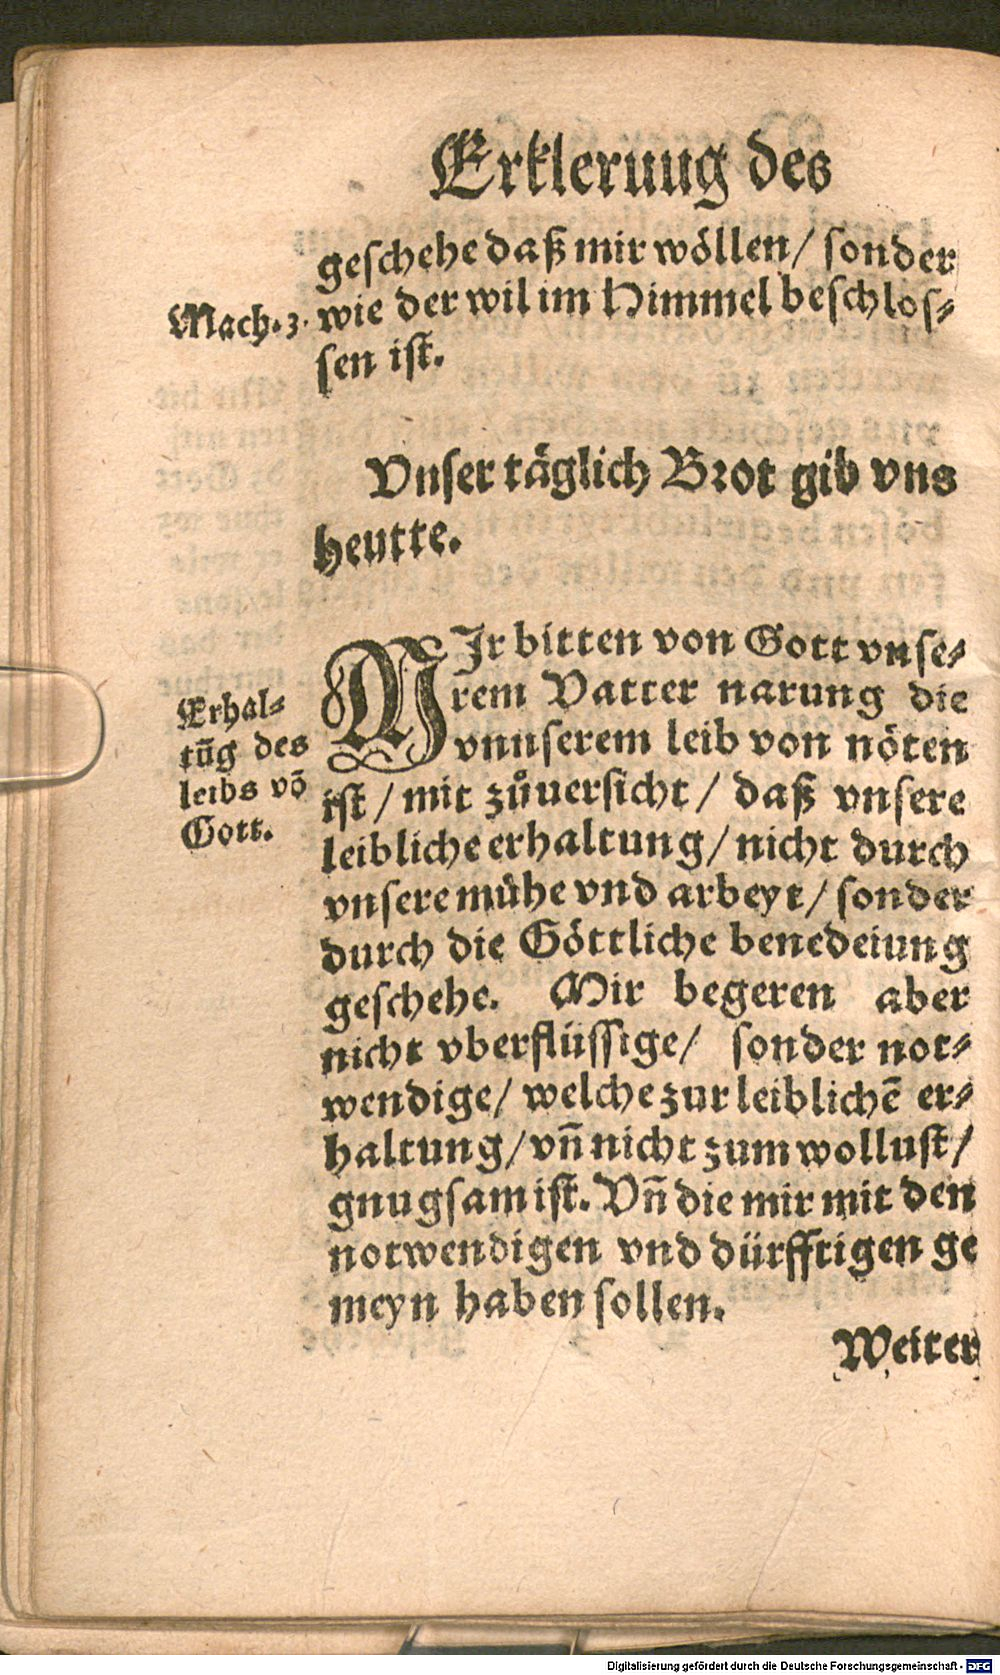 Erklerung des
geschehe daß mir wöllen/ sonder
Mach.3.
wie der wil im Himmel beschlos-
sen ist.
Vnser täglich Brot gib vns
heutte.
MIr bitten von Gott vnse-
rem Vatter narung die
vnnserem leib von nöten
ist/ mit zůuersicht/ daß vnsere
leibliche erhaltung/ nicht durch
vnsere mühe vnd arbeyt/ sonder
durch die Göttliche benedeiung
geschehe. Mir begeren aber
nicht vberflüssige/ sonder not-
wendige/ welche zur leiblichē er-
haltung/ vñ nicht zum wollust/
gnugsam ist. Vñ die mir mit den
notwendigen vnd dürfftigen ge
meyn haben sollen.
Erhal-
tũg des
leibs võ
Gott.
Weiter
Digitalisierung gefördert durch die Deutsche Forschungsgemeinschaft - DFG